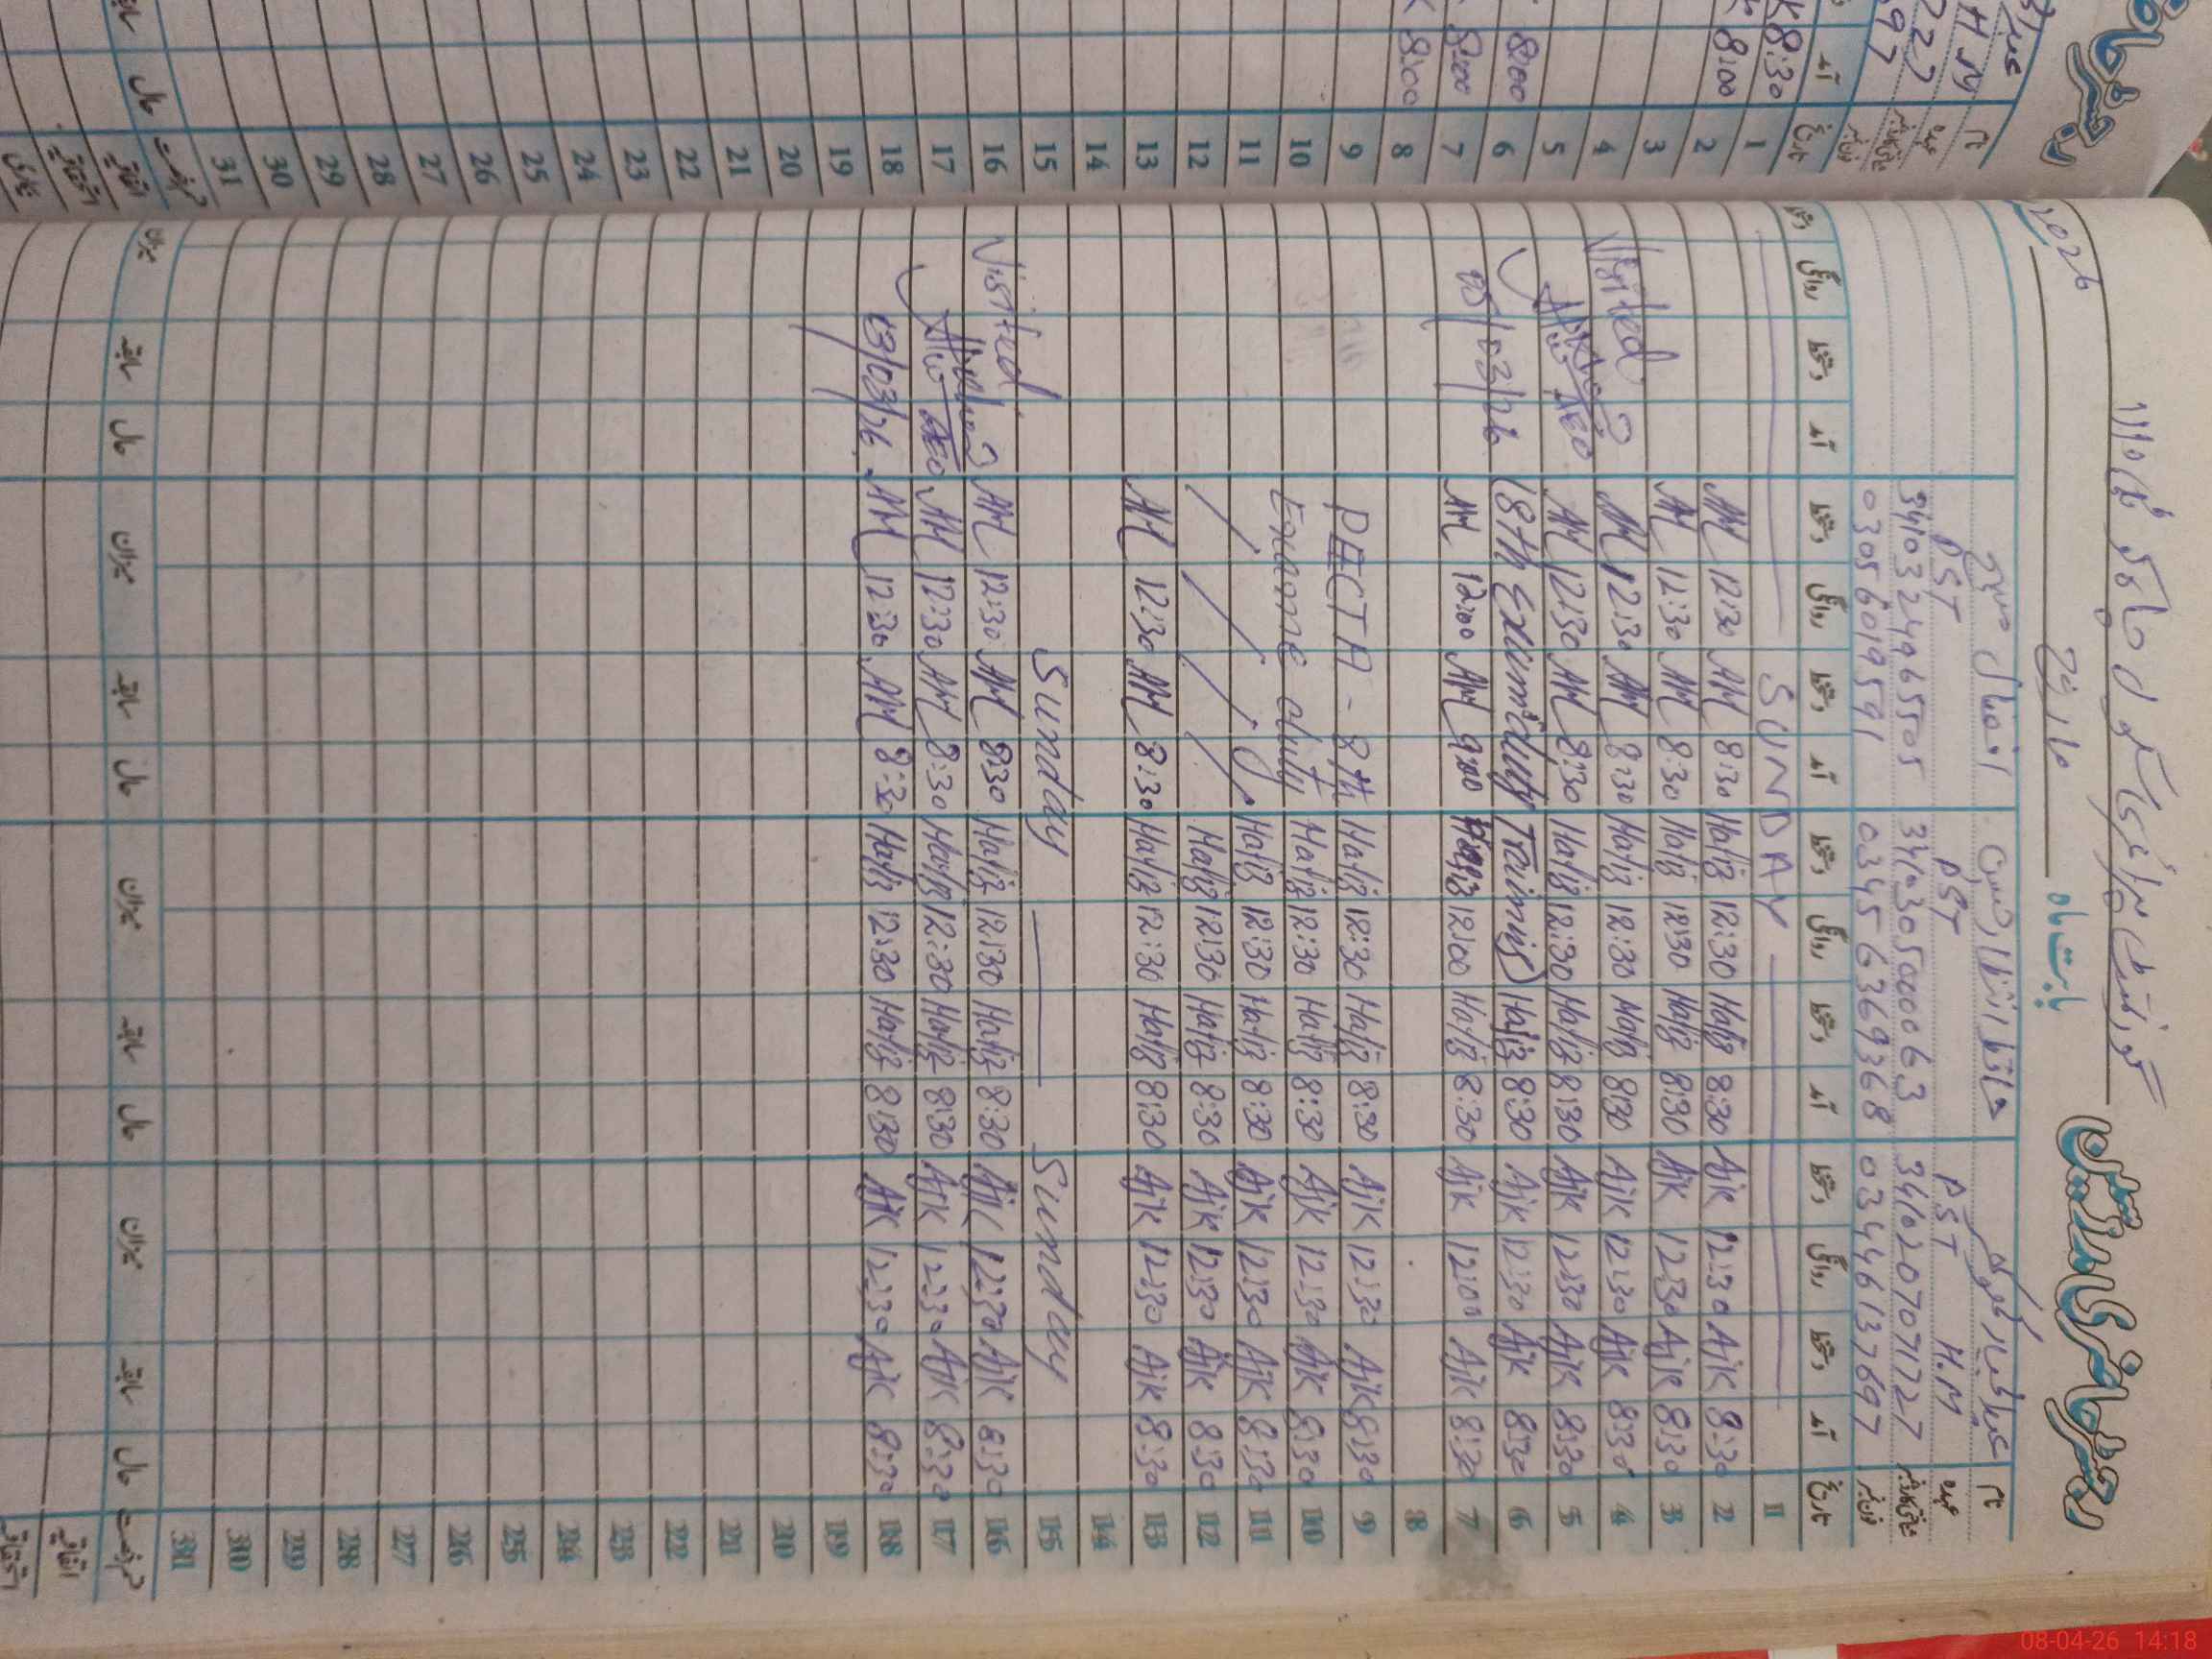 رجسٹر حاضری مدرسین
گورنمنٹ
بابت ماہ مارچ 2026
نام
عہدہ PST H.M PST PST
شناختی کارڈ نمبر 3410207071727 3410305000063 3410324965505
فون نمبر 03446137897 03456369368 03056019591
تاریخ آمد دستخط روانگی دستخط آمد دستخط روانگی دستخط آمد دستخط روانگی دستخط آمد دستخط روانگی دستخط
1 SUNDAY
2 8:30 AjK 12:30 AjK 8:30 Hafiz 12:30 Hafiz 8:30 AM 12:30 AM
3 8:30 AjK 12:30 AjK 8:30 Hafiz 12:30 Hafiz 8:30 AM 12:30 AM
4 8:30 AjK 12:30 AjK 8:30 Hafiz 12:30 Hafiz 8:30 AM 12:30 AM Visited
5 8:30 AjK 12:30 AjK 8:30 Hafiz 12:30 Hafiz 8:30 AM 12:30 AM AEO
6 8:30 AjK 12:30 AjK 8:30 Hafiz (8th Exam duty Trainig)
7 8:30 AjK 12:00 AjK 8:30 Hafiz 12:00 Hafiz 9:00 AM 12:00 AM 05/03/26
8
9 8:30 AjK 12:30 AjK 8:30 Hafiz 12:30 Hafiz PECTA - 8th
10 8:30 AjK 12:30 AjK 8:30 Hafiz 12:30 Hafiz Examone duty
11 8:30 AjK 12:30 AjK 8:30 Hafiz 12:30 Hafiz
12 8:30 AjK 12:30 AjK 8:30 Hafiz 12:30 Hafiz
13 8:30 AjK 12:30 AjK 8:30 Hafiz 12:30 Hafiz 8:30 AM 12:30 AM
14
15 Sunday Sunday
16 8:30 AjK 12:30 AjK 8:30 Hafiz 12:30 Hafiz 8:30 AM 12:30 AM Visited
17 8:30 AjK 12:30 AjK 8:30 Hafiz 12:30 Hafiz 8:30 AM 12:30 AM AEO
18 8:30 AjK 12:30 AjK 8:30 Hafiz 12:30 Hafiz 8:30 AM 12:30 AM 13/03/26
19
20
21
22
23
24
25
26
27
28
29
30
31
حال سابقہ میزان حال سابقہ میزان حال سابقہ میزان حال سابقہ میزان
اتفاقیہ
نام
عہدہ H M
فون نمبر
تاریخ آمد
1 8:30
2 8:00
3
4
5
6 8:00
7 8:00
8 8:00
9
10
11
12
13
14
15
16
17
18
19
20
21
22
23
24
25
26
27
28
29
30
31
حال
اتفاقیہ
08-04-26 14:18